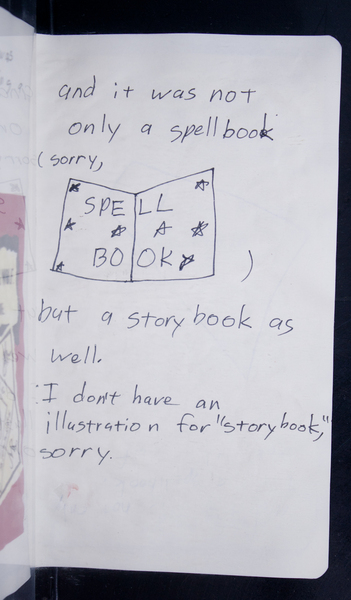 and it was not
only a spellbook
(sorry,
SPELL
BOOK
)
but a storybook as
well.
I don't have an
illustration for "storybook,"
sorry.